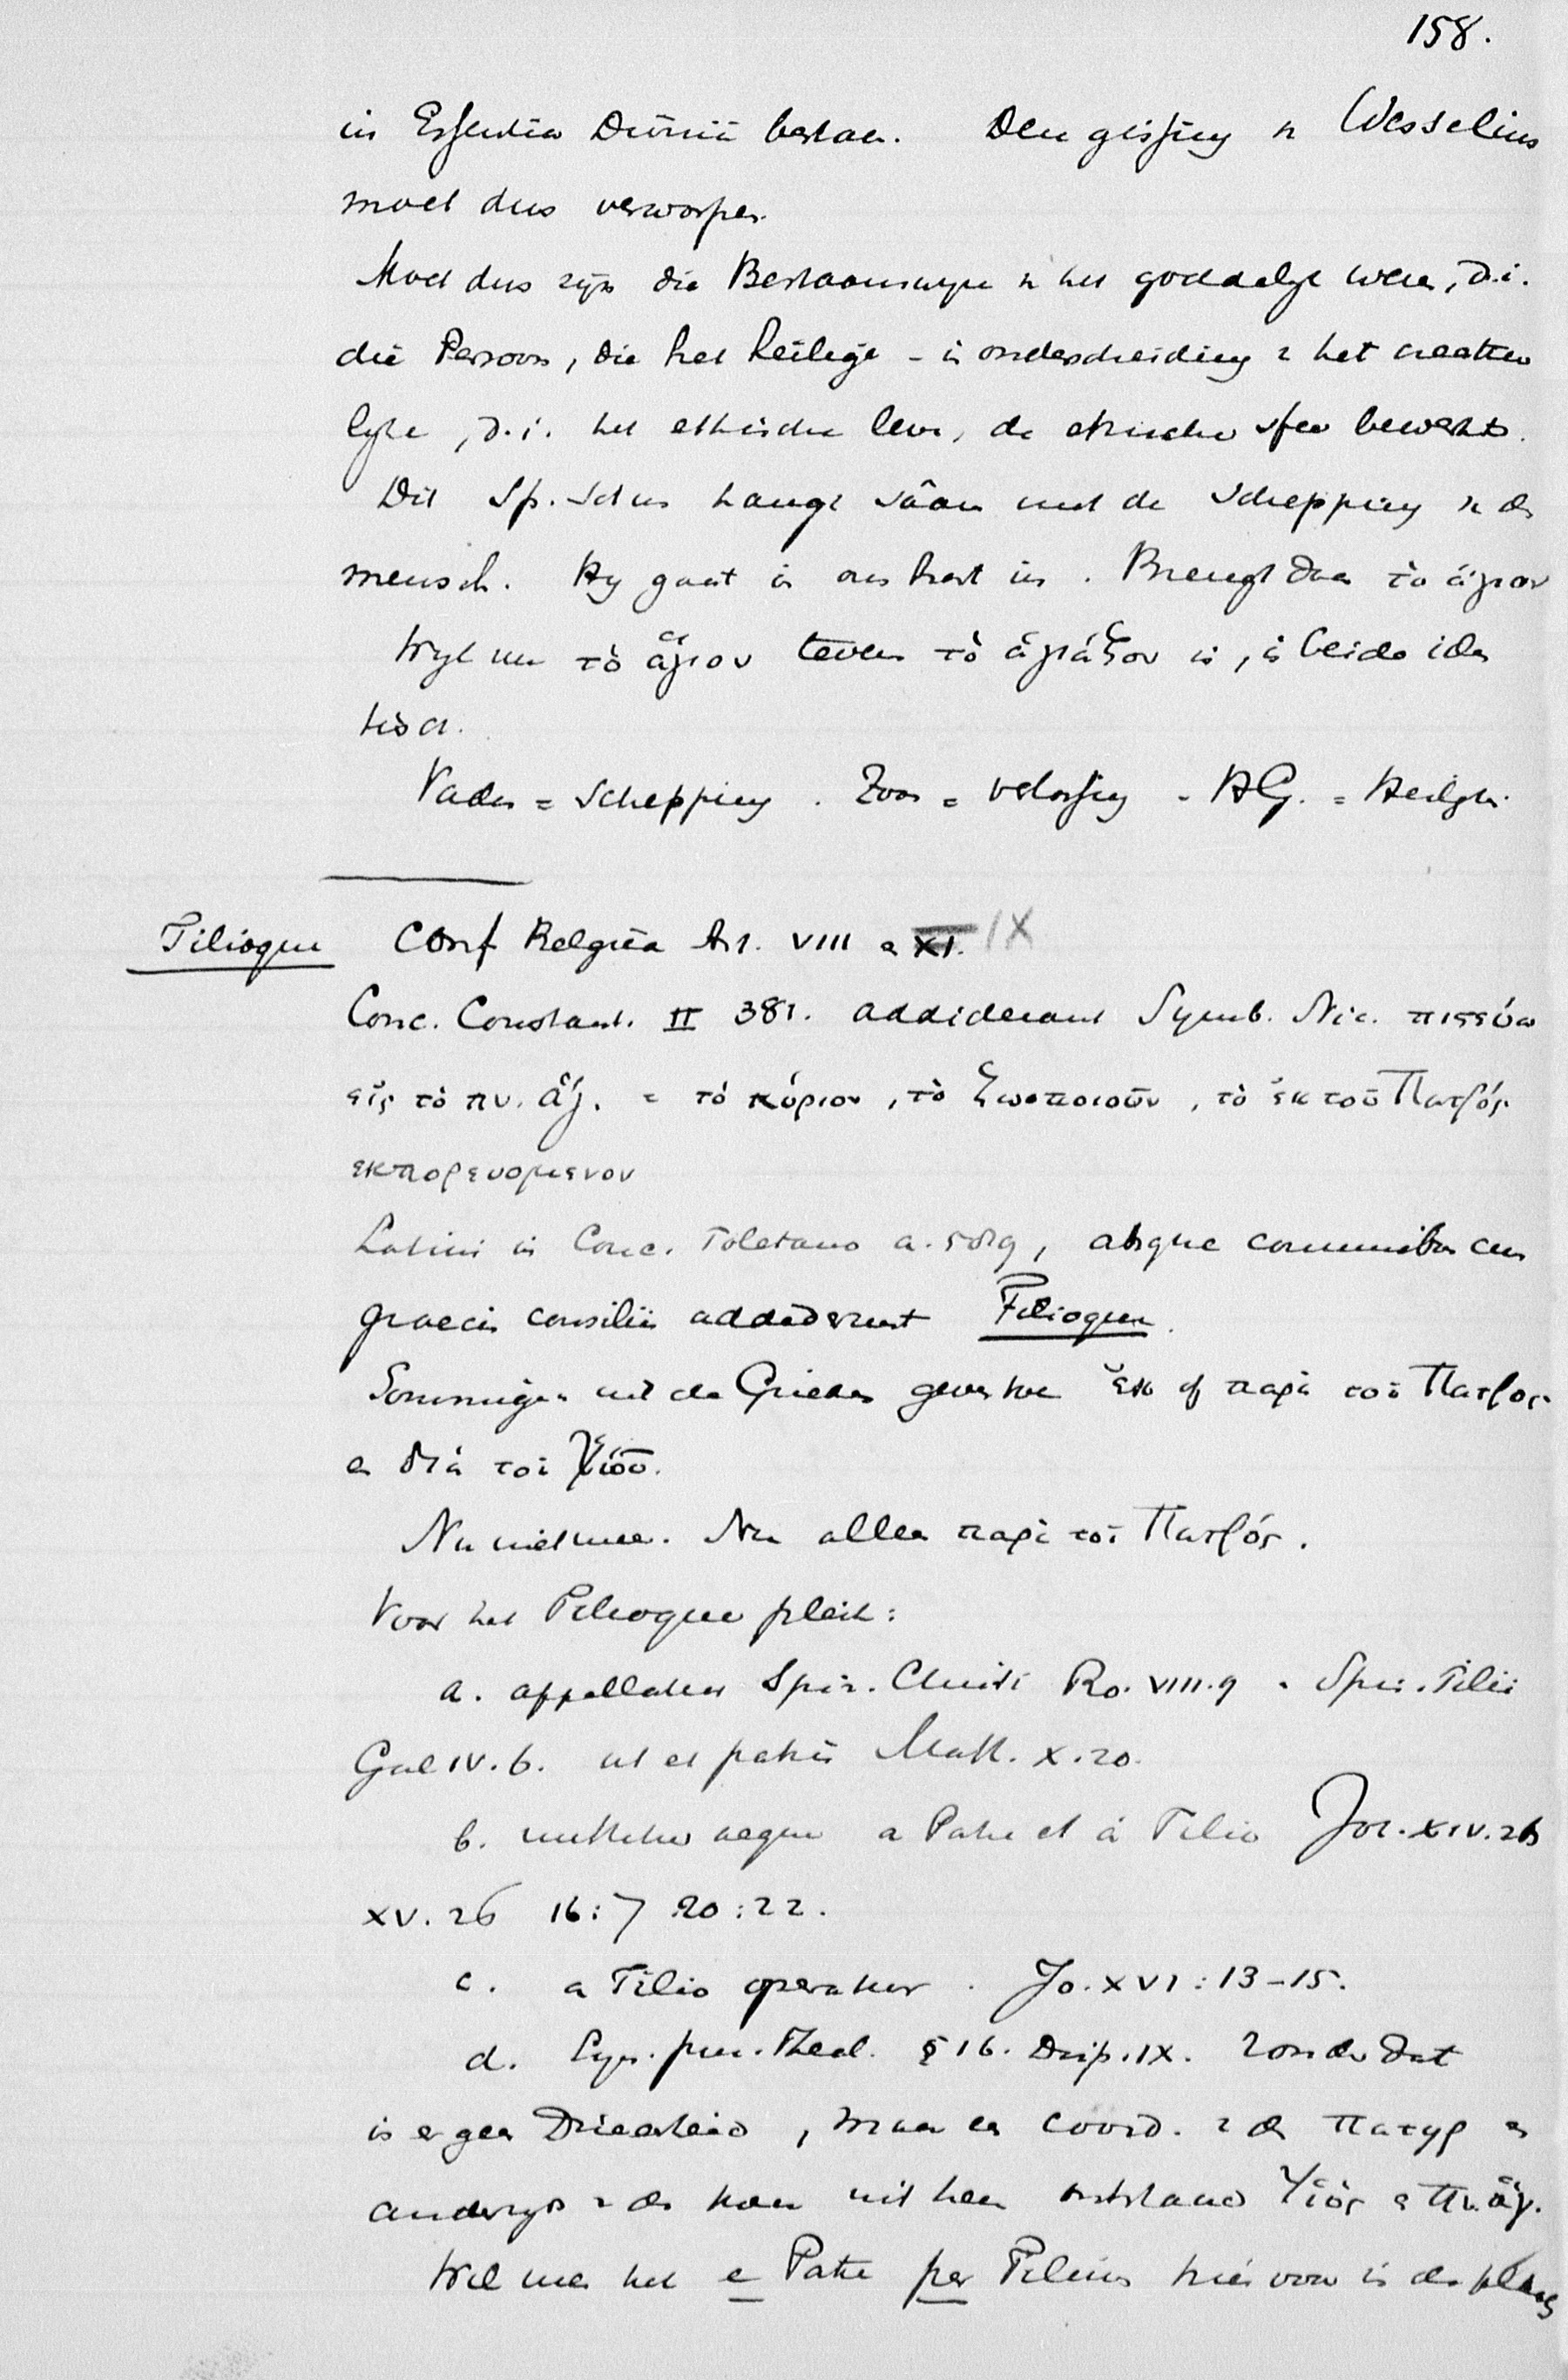 158.
in Essentia Divinâ bestaan. Den gissing v Wesselius
moet dus verworpen.
Moet dus zijn die Bestaanswyze v het goddelyk wezen, d.i.
die Persoon, die het heilige – in onderscheiding v het creatuur
lyke, d.i. het ethische leven, de ethische sfeer bewerkt.
Dit Sp. Sctus hangt sâam met de schepping v de
mensch. Hy gaat in ons hart in. Brengt daar τὸ ἅγιον
Wyl nu τὸ ἅγιον tevens τὸ ἁγιάζον is, is beide iden
tisch.
Vader = Schepping. Zoon = verlossing - HG. = Heilgn.
Filioque Conf Belgica Art. VIII en XI. IX
Conc. Constant. II 381. addiderant Symb. Nic. πιστεύω
εἰς τὸ πν. ἅγ. = τὸ κύριον, τὸ ζωοποιοῦν, τὸ ἐκ τοῦ Πατρός
εκπορευομενον
Latini in Conc. Toletano a. 589, absque communibus cum
graecis consiliis addiderunt Filioque.
Sommigen uit de Grieken geven toe ἐκ of παρὰ τοῦ Πατρος
en διὰ τοῦ Υἱοῦ.
Nu niet meer. Nu alleen παρὰ τοῦ Πατρός.
Voor het Filioque pleit:
a. appellatur Spir. Christi Ro. VIII.9. Spir. Filii
Gal IV.6. ut et patris Matt. X.20.
b. mittitur aeque a Patre et à Filio Joh. XIV.26
XV.26 16:7 20:22.
c. a Filio operatur. Jo. XVI:13-15.
d. Syn. pur. Theol. § 16. Disp. IX. Zonder dat
is er geen Drieenheid, maar en coord. v de Πατηρ en
anderzyds v de twee uit hem ontstaand Υἱὸς en Πν. ἅγ.
Wil men het e Patre per Filium hiervoor in de plaats